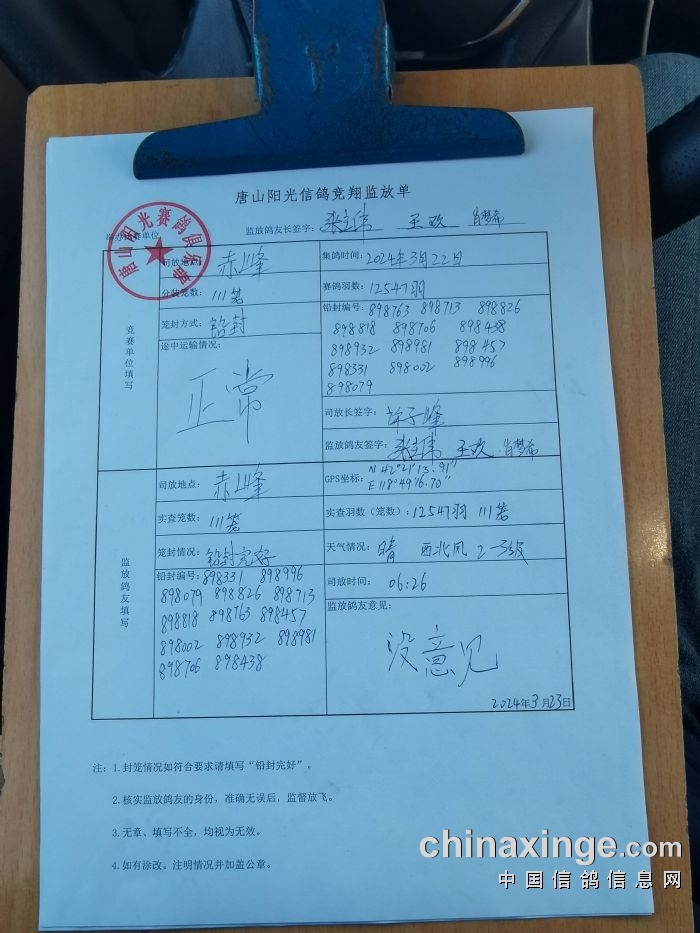 唐山阳光信鸽竞翔监放单
唐山阳光赛鸽俱乐部
举办比赛单位
监放鸽友长签字：张立伟 王欢 肖梦希
竞赛单位填写
司放地点：赤峰
集鸽时间：2024年3月22日
分装笼数：111笼
赛鸽羽数：12547羽
笼封方式：铅封
铅封编号：898763 898713 898826
898818 898706 898438
898932 898981 898457
898331 898002 898996
898079
途中运输情况：
正常
司放长签字：
监放鸽友签字：张立伟 王欢 肖梦希
监放鸽友填写
司放地点：赤峰
GPS坐标：N 42°21′13.91″
E 118°49′16.70″
实查笼数：111笼
实查羽数（笼数）：12547羽 111笼
笼封情况：铅封完好
天气情况：晴 西北风 2-3级
铅封编号：898331 898996
898079 898826 898713
898818 898763 898457
898002 898932 898981
898706 898438
司放时间：06:26
监放鸽友意见：
没意见
2024年3月23日
注：1.封笼情况如符合要求请填写“铅封完好”。
2.核实监放鸽友的身份，准确无误后，监督放飞。
3.无章、填写不全，均视为无效。
4.如有涂改。注明情况并加盖公章。
chinaxinge.com
中国信鸽信息网